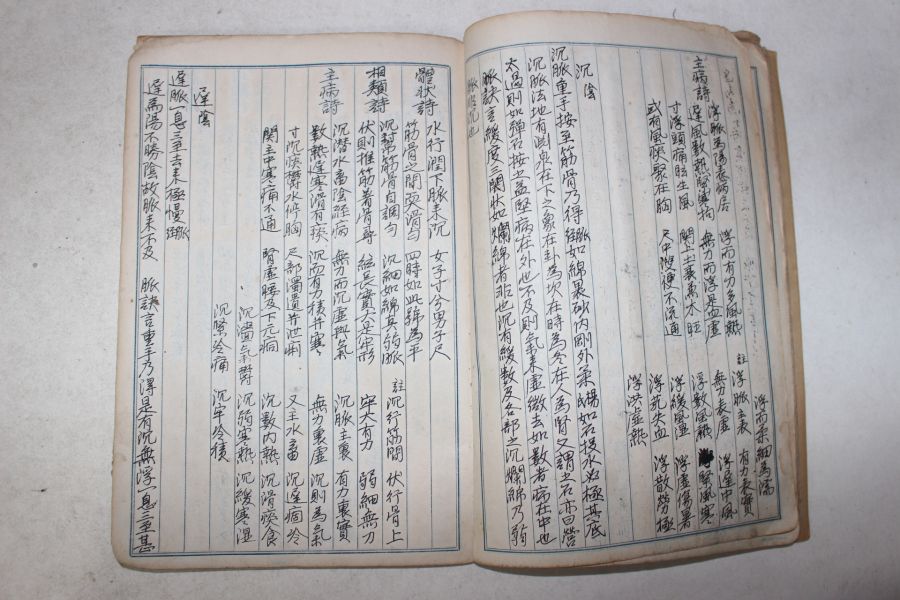 主病詩 浮脈為陽表病居
遲風數熱緊寒拘
浮而有力多風熱
無力而浮是血虛
寸浮頭痛眩生風
或有風痰聚在胸
關上土衰兼木旺
尺中溲便不流通
註 浮脈主表 有力表實
無力表虛 浮遲中風
浮數風熱 浮緊風寒
浮緩風湿 浮虛傷暑
浮芤失血 浮散勞極
浮洪虛熱
沉 陰
沉脈重手按至筋骨乃得 如綿裹砂內剛外柔 如石投水必極其底
沉脈法地有淵泉在下之象在卦為坎在時為冬在人為腎又謂之石亦曰營
太過則如彈石按之益堅病在外也不及則氣來虛微去如數者病在中也
脈訣言緩度三關狀如爛綿者非也沉有緩數及各部之沉爛綿乃弱
脈非沉也
體狀詩 水行潤下脈来沉
筋骨之間耎滑勻
女子寸兮男子尺
四時如此號為平
相類詩 沉幫筋骨自調勻
伏則推筋着骨尋
沉細如綿真弱脈
弦長實大是牢形
註 沉行筋間 伏行骨上
牢大有力 弱細無力
主病詩 沉潛水畜陰經病
數熱遲寒滑有痰
無力而沉虛與氣
沉而有力積并寒
寸沉痰欝水停胸
關主中寒痛不通
尺部濁遺并泄痢
腎虛腰及下元痌
沉脈主裏 有力裏實
無力裏虛 沉則為氣
又主水畜 沉遲痼冷
沉數內熱 沉滑痰食
沉濇氣欝 沉弱寒熱 沉緩寒湿
沉緊冷痛 沉牢冷積
遲 陰
遲脈一息三至去来極慢 脈
遲為陽不勝陰故脈来不及 脈訣言重手乃得是有沉無浮一息三至甚